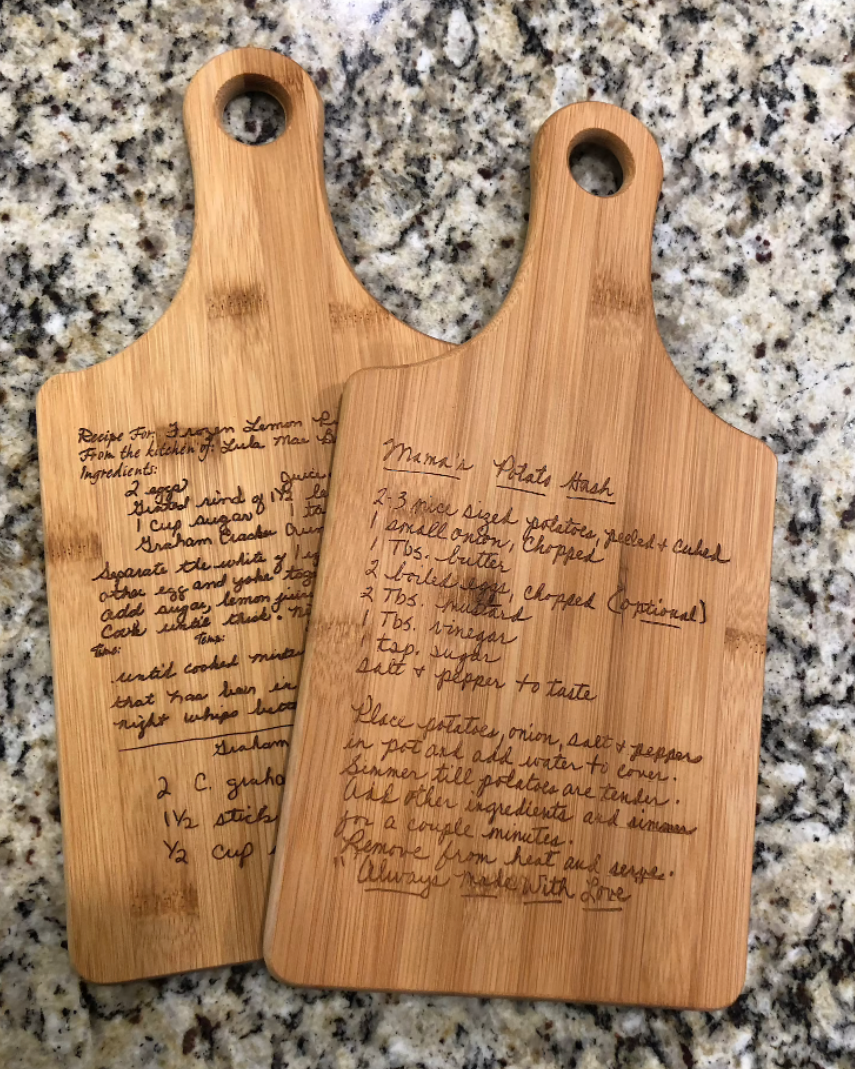 Recipe For: Frozen Lemon
From the kitchen of: Lula Mae
Ingredients:
2 eggs
Juice
Grated rind of 1½
1 cup sugar
Graham Cracker
Separate the white of 1
other egg and yoke
add sugar, lemon
Cook until thick.
Time: Temp:
until cooked
that has been in
night whips
Graham
2 C.
1½ sticks
½ cup
Mama's Potato Hash
2-3 nice sized potatoes, peeled + cubed
1 small onion, chopped
1 Tbs. butter
2 boiled eggs, chopped (optional)
2 Tbs. mustard
1 Tbs. vinegar
1 tsp. sugar
salt + pepper to taste
Place potatoes, onion, salt + peppers
in pot and add water to cover.
Simmer till potatoes are tender.
Add other ingredients and simmer
for a couple minutes.
Remove from heat and serve.
"Always made With Love